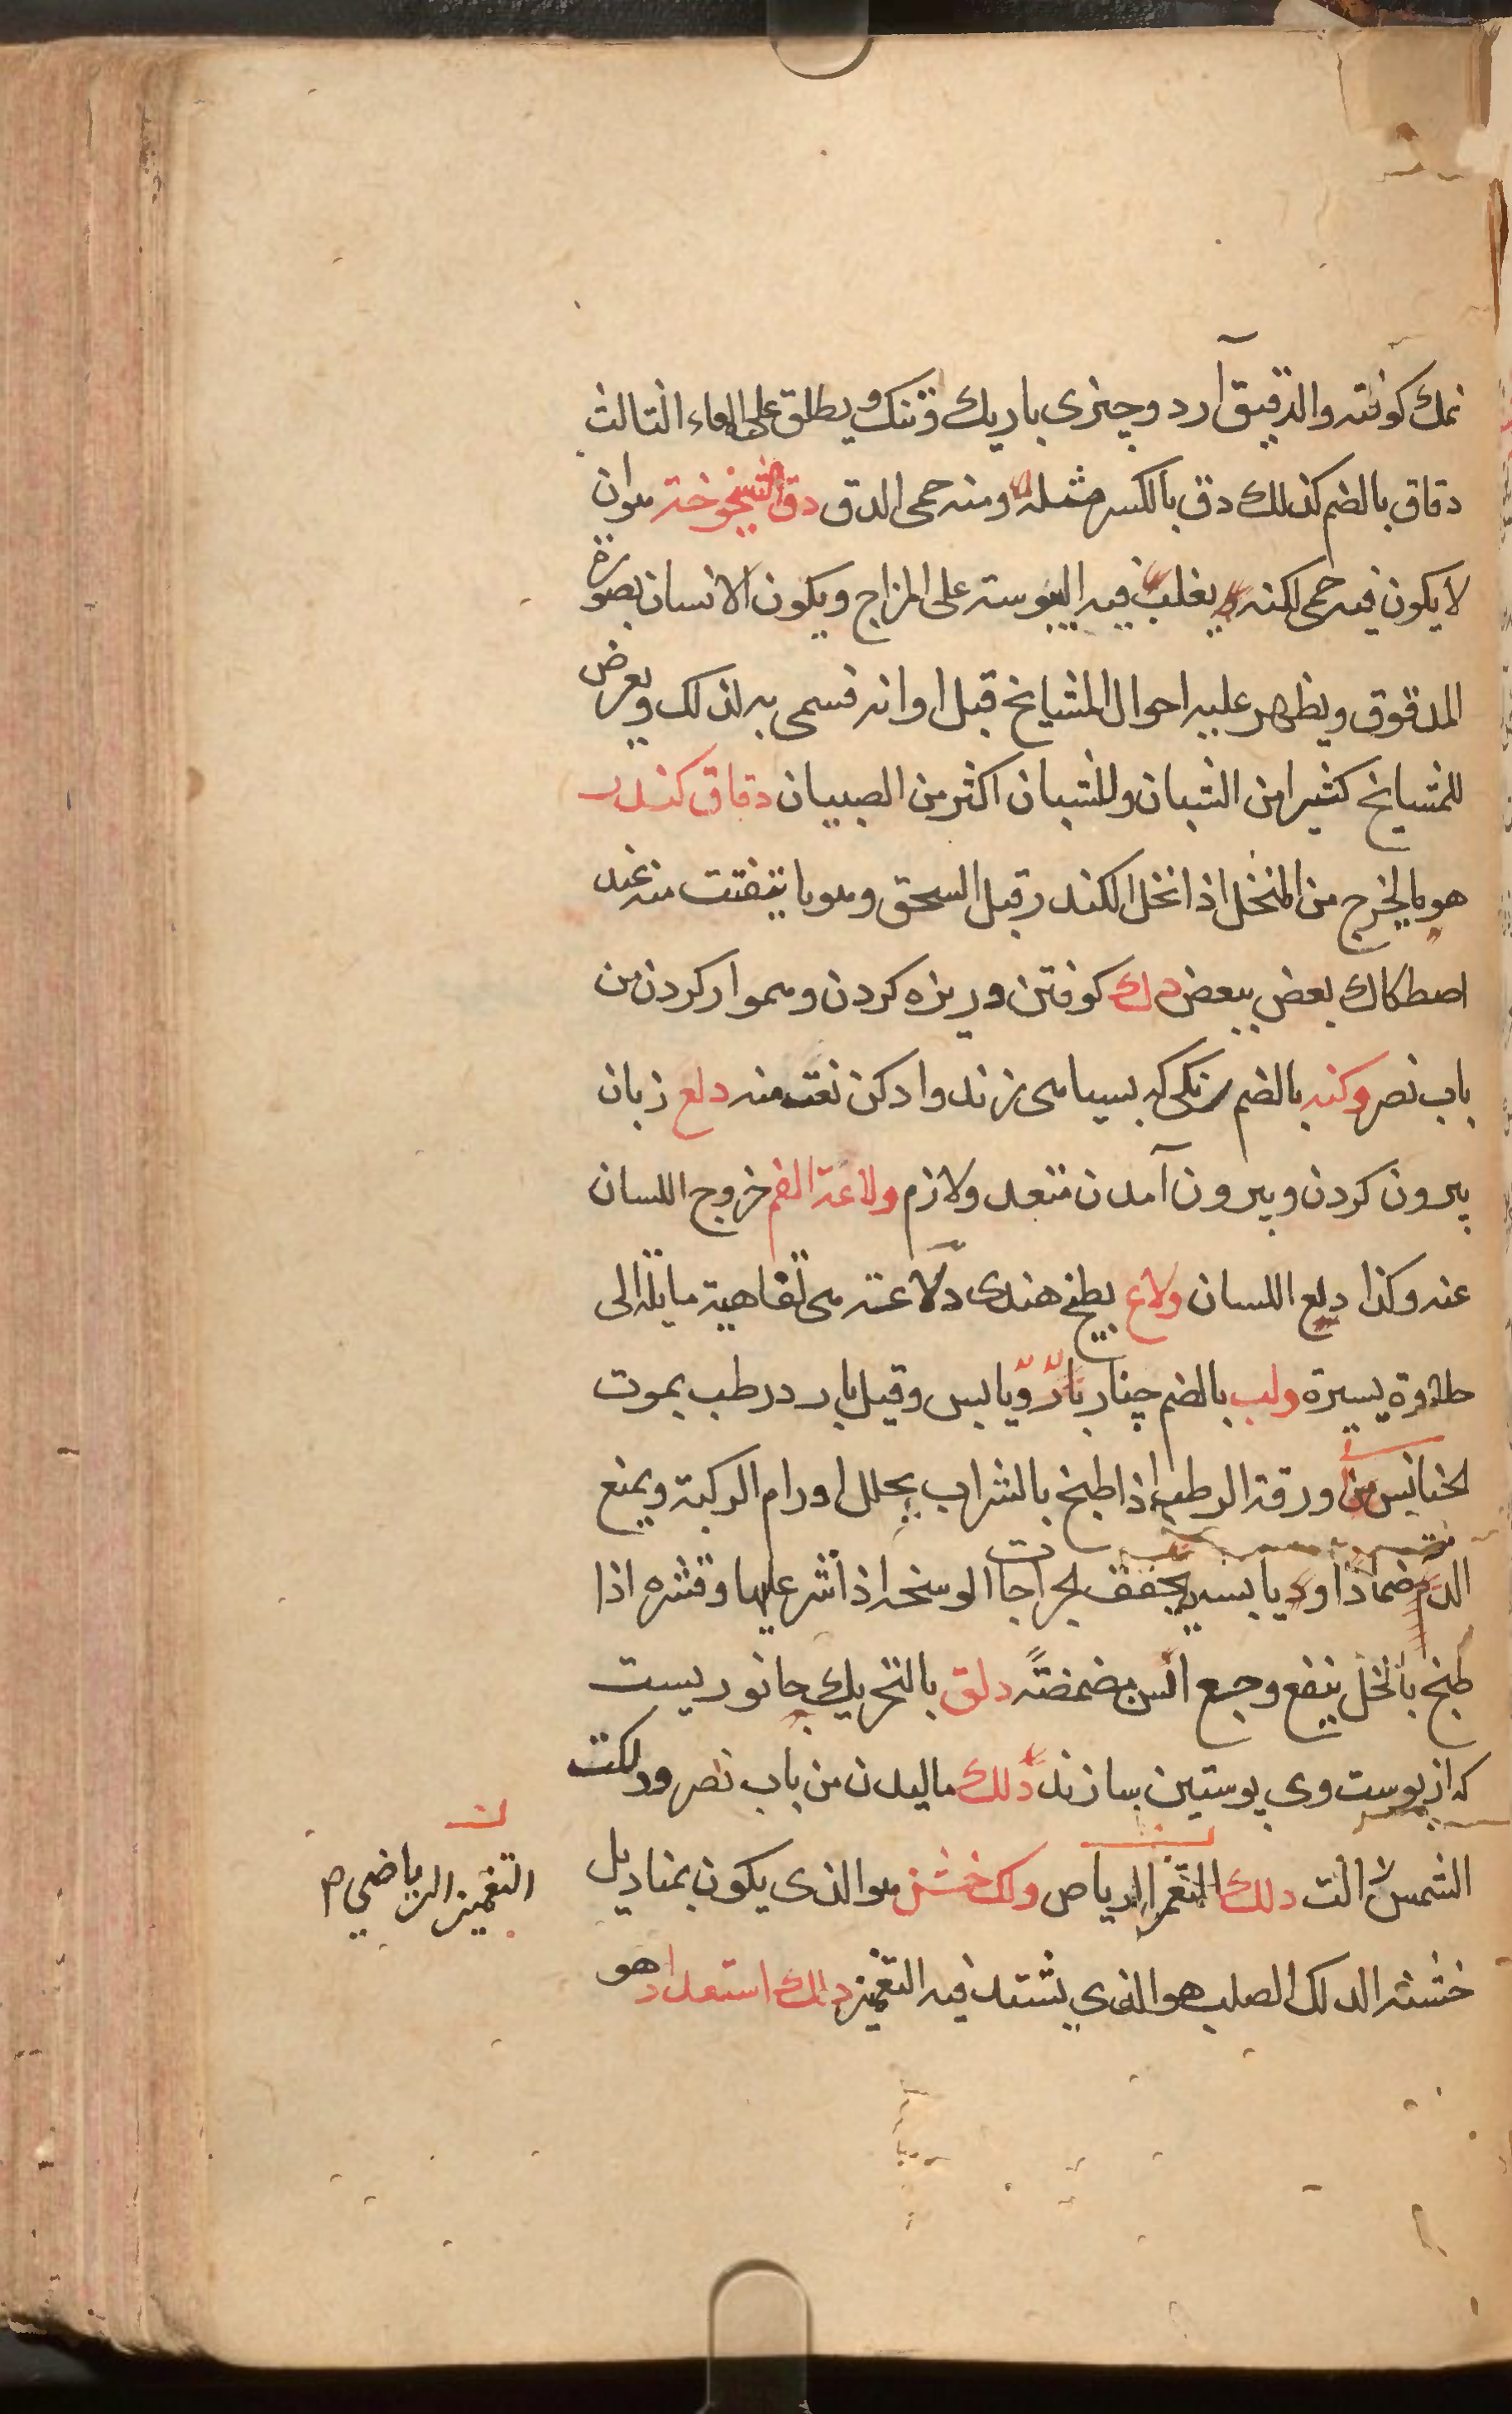 نمك كوفته والدقيق آرد و چيزى باريك و تنك و يطلق على المعاء الثالث
دقاق بالضم كذلك دق بالكسر مثله ومنه حمى الدق دق الشيخوخة هو ان
لا يكون فيه حمى لكنه يغلب فيه اليبوسة على المزاج ويكون الانسان بصورة
المدقوق ويظهر عليه احوال المشايخ قبل اوانه فسمى به لذلك ويعرض
للمشايخ كثيرا من الشبان وللشبان اكثر من الصبيان دقاق كندر
هو ما يخرج من المنخل اذا نخل الكندر قبل السحق وهو ما يتفتت منه عند
اصطكاك بعض ببعض دك كوفتن و ريزه كردن و هموار كردن من
باب نصر وكنه بالضم رنكى كه بسياهى زند و ادكن نعت منه دلع زبان
بيرون كردن و بيرون آمدن متعد ولازم ولاعة الفم خروج اللسان
عنه وكذا دلع اللسان ولاع بطيخ هندى دلاعته هى تفاهية مايلة الى
حلاوة يسيرة ولب بالضم چنار بارد ويابس وقيل بارد رطب يموت
الخنافس من ورقة الرطب اذا طبخ بالشراب يحلل اورام الركبة ويمنع
الدم ضمادا ويابسه يجفف الجراحات الوسخة اذا نثر عليها وقشره اذا
طبخ بالخل ينفع وجع السن مضمضة دلق بالتحريك جانوريست
كه از پوست وى پوستين سازند دلك ماليدن من باب نصر ودلكت
الشمس زالت دلك التغمز الرياض ولك خشن هو الذى يكون بمناديل
التغميز الرياضي م
خشنة الدلك الصلب هو الذي يشتد فيه التغميز دلك استعداد هو